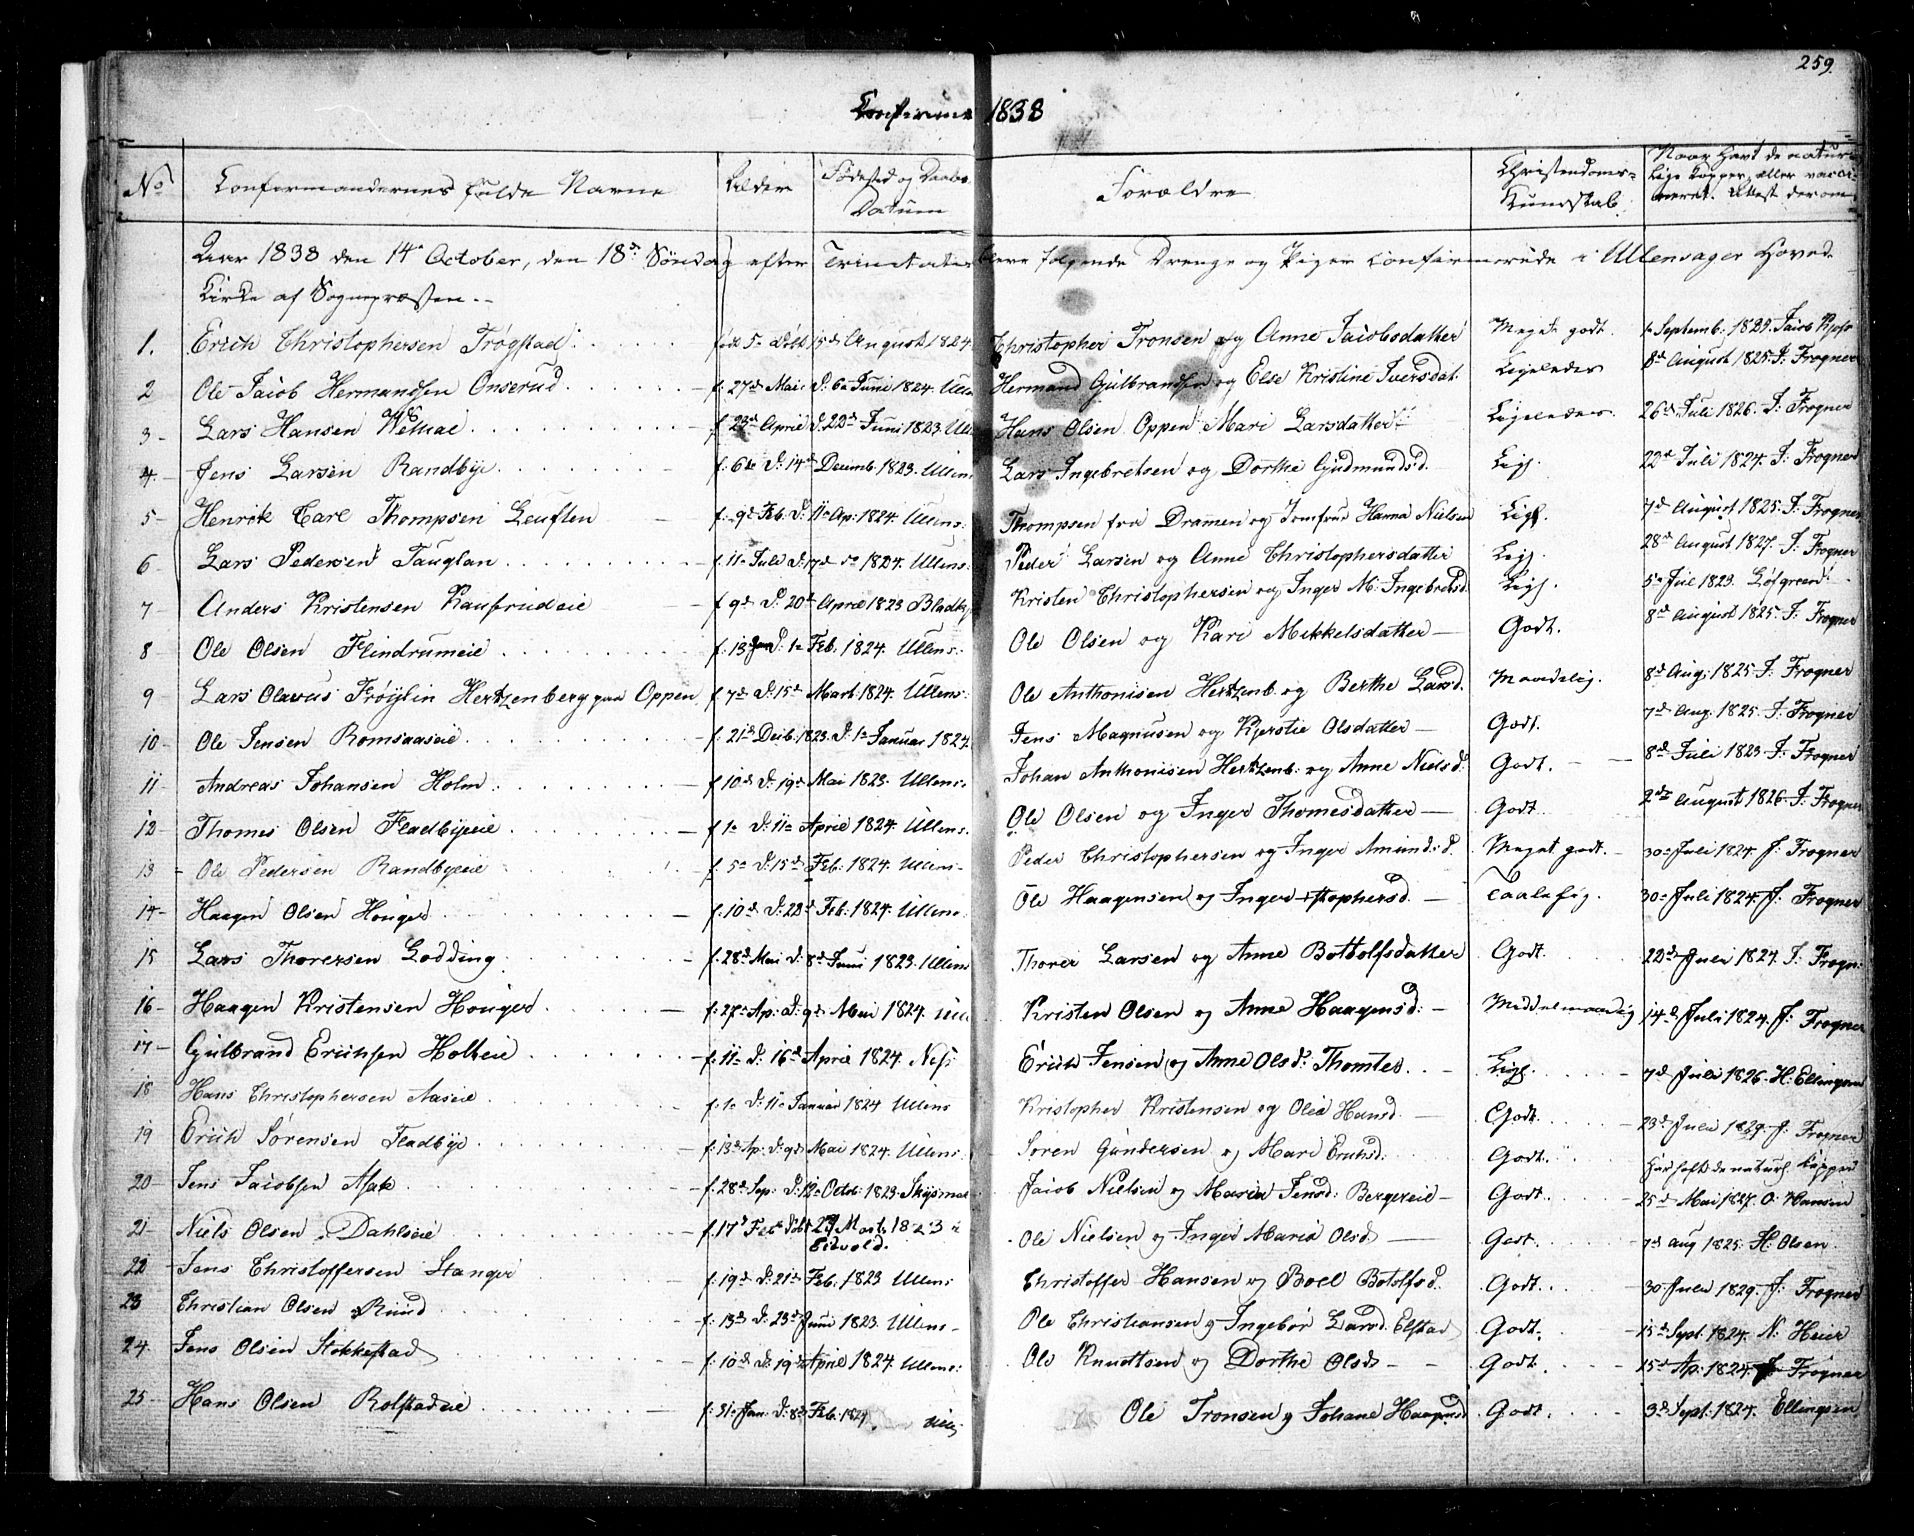 259.
Confirmer 1838
No Confirmandernes fulde Navne Alder Fødested og Daabs Datum Forældre Christendoms-Kundskab Naar havt de naturlige Kopper, eller vaccineret. Attest derom
Aar 1838 den 14de October, den 18de Søndag after Trinitatis bleve følgende Drenge og Piger confirmerede i Ullensager Hoved-
Kirke af Sognepræsten.
1. Erich Christophersen Trøgstad fød 5te Døbt 15de August 1824 Christopher Tronsen og Anne Jacobsdatter Meget godt. 1 Septemb. 1825. Jacob
2 Ole Jacob Hermandsen Onserud f. 27de Mai D. 6te Juni 1824. Ullen Hermand Gulbrandsen og Else Kristine Iversdat. Ligeledes 8de August 1825. J. Frogner
3 Lars Hansen f. 23de April D. 22de Juni 1823. Ull Hans Olsen Oppen Mari Larsdatter Ligeledes. 26de Juli 1826. J. Frogner
4 Jens Larsen Randbye f. 6te D. 14de Decemb. 1823. Ullens Lars Ingebretsen og Dorthe Gudmundsd. Ligl. 22de Juli 1824. J. Frogner
5 Henrik Carl Thompsen Leuflen f. 9de Feb. D. 11te Ap. 1824. Ullens. Thompsen fra Dramen og Jomfrue Hanna Nielsen Ligl. 7de August 1825. J. Frogner
6 Lars Pedersen Tauglan f. 11te Juli D. 17de 1824. Ullens. Peder Larsen og Anne Christophersdatter Ligl. 28de August 1827. J. Frogner
7 Anders Kristensen Kaufrudeie f. 9de D. 20de April 1823 Kristen Christophersen og Inger M. Ingebretsd. Ligl. 5te Juli 1823. Løfgreen
8 Ole Olsen Flindrumeie f. 13 Jan D. 1te Feb. 1824. Ullens. Ole Olsen og Kari Mikkelsdatter Godt. 8de August 1825. J. Frogner
9 Lars Olavus Frøylin Hertzenberg paa Oppen f. 7de D. 15de Marts 1824. Ullens. Ole Anthonisen Hertzenb. og Berthe Larsd. Maadelig. 8de Aug. 1825. J. Frogner
10 Ole Jensen Romsaaseie f. 21de Decb. 1823. D. 1te Januar 1824. Jens Magnusen og Kjerstie Olsdatter Godt. 7de Aug. 1825. J. Frogner
11 Andreas Johansen Holm f. 10de D. 19de Mai 1823. Ullens. Johan Anthonisen Hertzenb. og Anne Nielsd. Godt. 8de Juli 1823. J. Frogner
12 Thomes Olsen Fladbyeie f. 1te D. 11te April 1824. Ullens. Ole Olsen og Inger Thomesdatter Godt. 2de August 1826. J. Frogner
13 Ole Pedersen Randbyeie f. 5te D. 15de Feb. 1824. Ullens. Peder Christophersen og Inger Amunds.d. Meget godt. 30te Juli 1824. J. Frogner
14 Haagen Olsen Houger f. 10de D. 22de Feb. 1824. Ullens. Ole Haagensen og Inger +stophersd. Taalelig. 30te Juli 1824. J. Frogner
15 Lars Thorersen Lodding f. 28de Mai D. 8de Juni 1823. Ullens Thorer Larsen og Anne Bottolfsdatter Godt. 22de Juli 1824. J. Frogn.
16 Haagen Kristensen Houger f. 27de Ap. D. 9de Mai 1824. Ull Kristen Olsen og Anne Haagensd. Middelmaadig 14de Juli 1824. J. Frogner
17 Gulbrand Erichsen Holteie f. 11te D. 16de April 1824. Nes. Erich Jensen og Anne Olsd. Thomtes. Ligl. 7de Juli 1826. H. Ellingsen
18 Hans Christophersen Aaseie f. 1te D. 11te Januar 1824 Ullens Kristopher Kristensen og Olea Hansd. Godt.
19 Erich Sørensen Fladbye f. 13de Ap. D. 9de Mai 1824. Ullens. Søren Gundersen og Mari Erichsd. Godt. 23de Juli 1829. J. Frogner
20 Jens Jacobsen Ask f. 28de Sep. D. 12te Octob. 1823. Skysmoe Jacob Nielsen og Maria Jensd. Bergereie Godt. Har haft de naturl. Kopper 25de Mai 1827. O. Hansen
21 Niels Olsen Dahlseie f. 17de Feb. døbt 29 Marts 1823 i Eidvold. Ole Nielsen og Inger Maria Olsd. Godt. 7de Aug 1825. H. Olsen.
22 Jens Christoffersen Stanger f. 19de D. 21de Feb. 1823 Ullens Christoffer Hansen og Boel Botolfsd. Godt. 30 Juli 1829. J. Frogner
23 Christian Olsen Rund f. 13de D. 23de Juni 1823. Ullens. Ole Christiansen og Ingebor Larsd. Elstad Godt. 15de Sept. 1824. N. Heier
24 Jens Olsen Stokkestad f. 10de D. 19de April 1824. Ullens. Ole Knudtsen og Dorthe Olsd. Godt. 15de Ap. 1824. J. Frogner
25 Hans Olsen Rolstadeie f. 31te Jan. D. 8de Feb. 1824. Ull. Ole Tronsen og Johane Haagensd. Godt. 3de Sept. 1824. Ellingsen